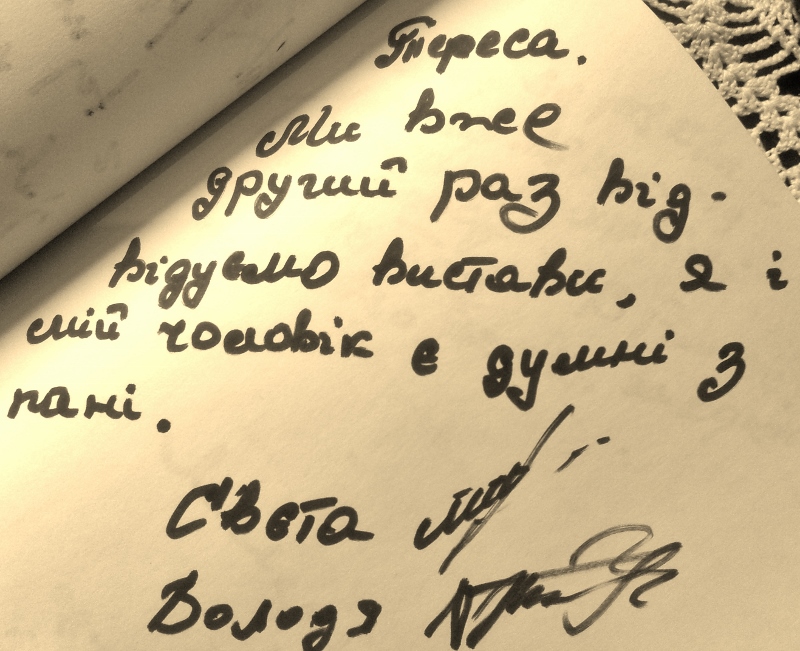 Тереса.
Ми вже
другий раз від-
відуємо вистави, я і
мій чоловік є думні з
пані.
Света
Володя